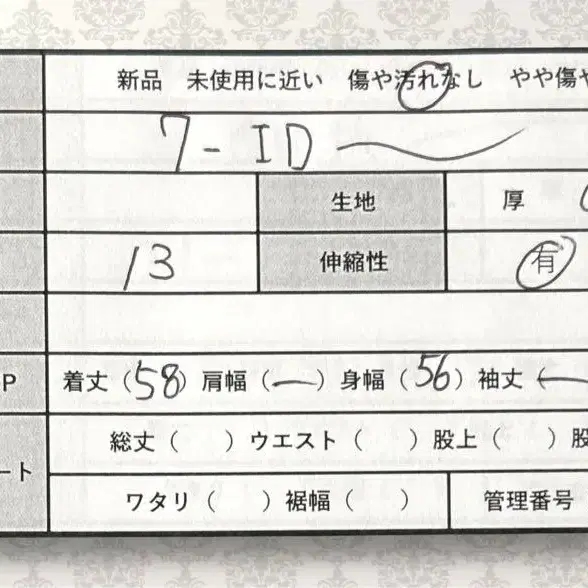 新品 未使用に近い 傷や汚れなし やや傷や
7-ID
生地 厚
13 伸縮性 有
P 着丈（58）肩幅（ー）身幅（56）袖丈（ー
総丈（ ）ウエスト（ ）股上（ ）股
ート
ワタリ（ ）裾幅（ ） 管理番号